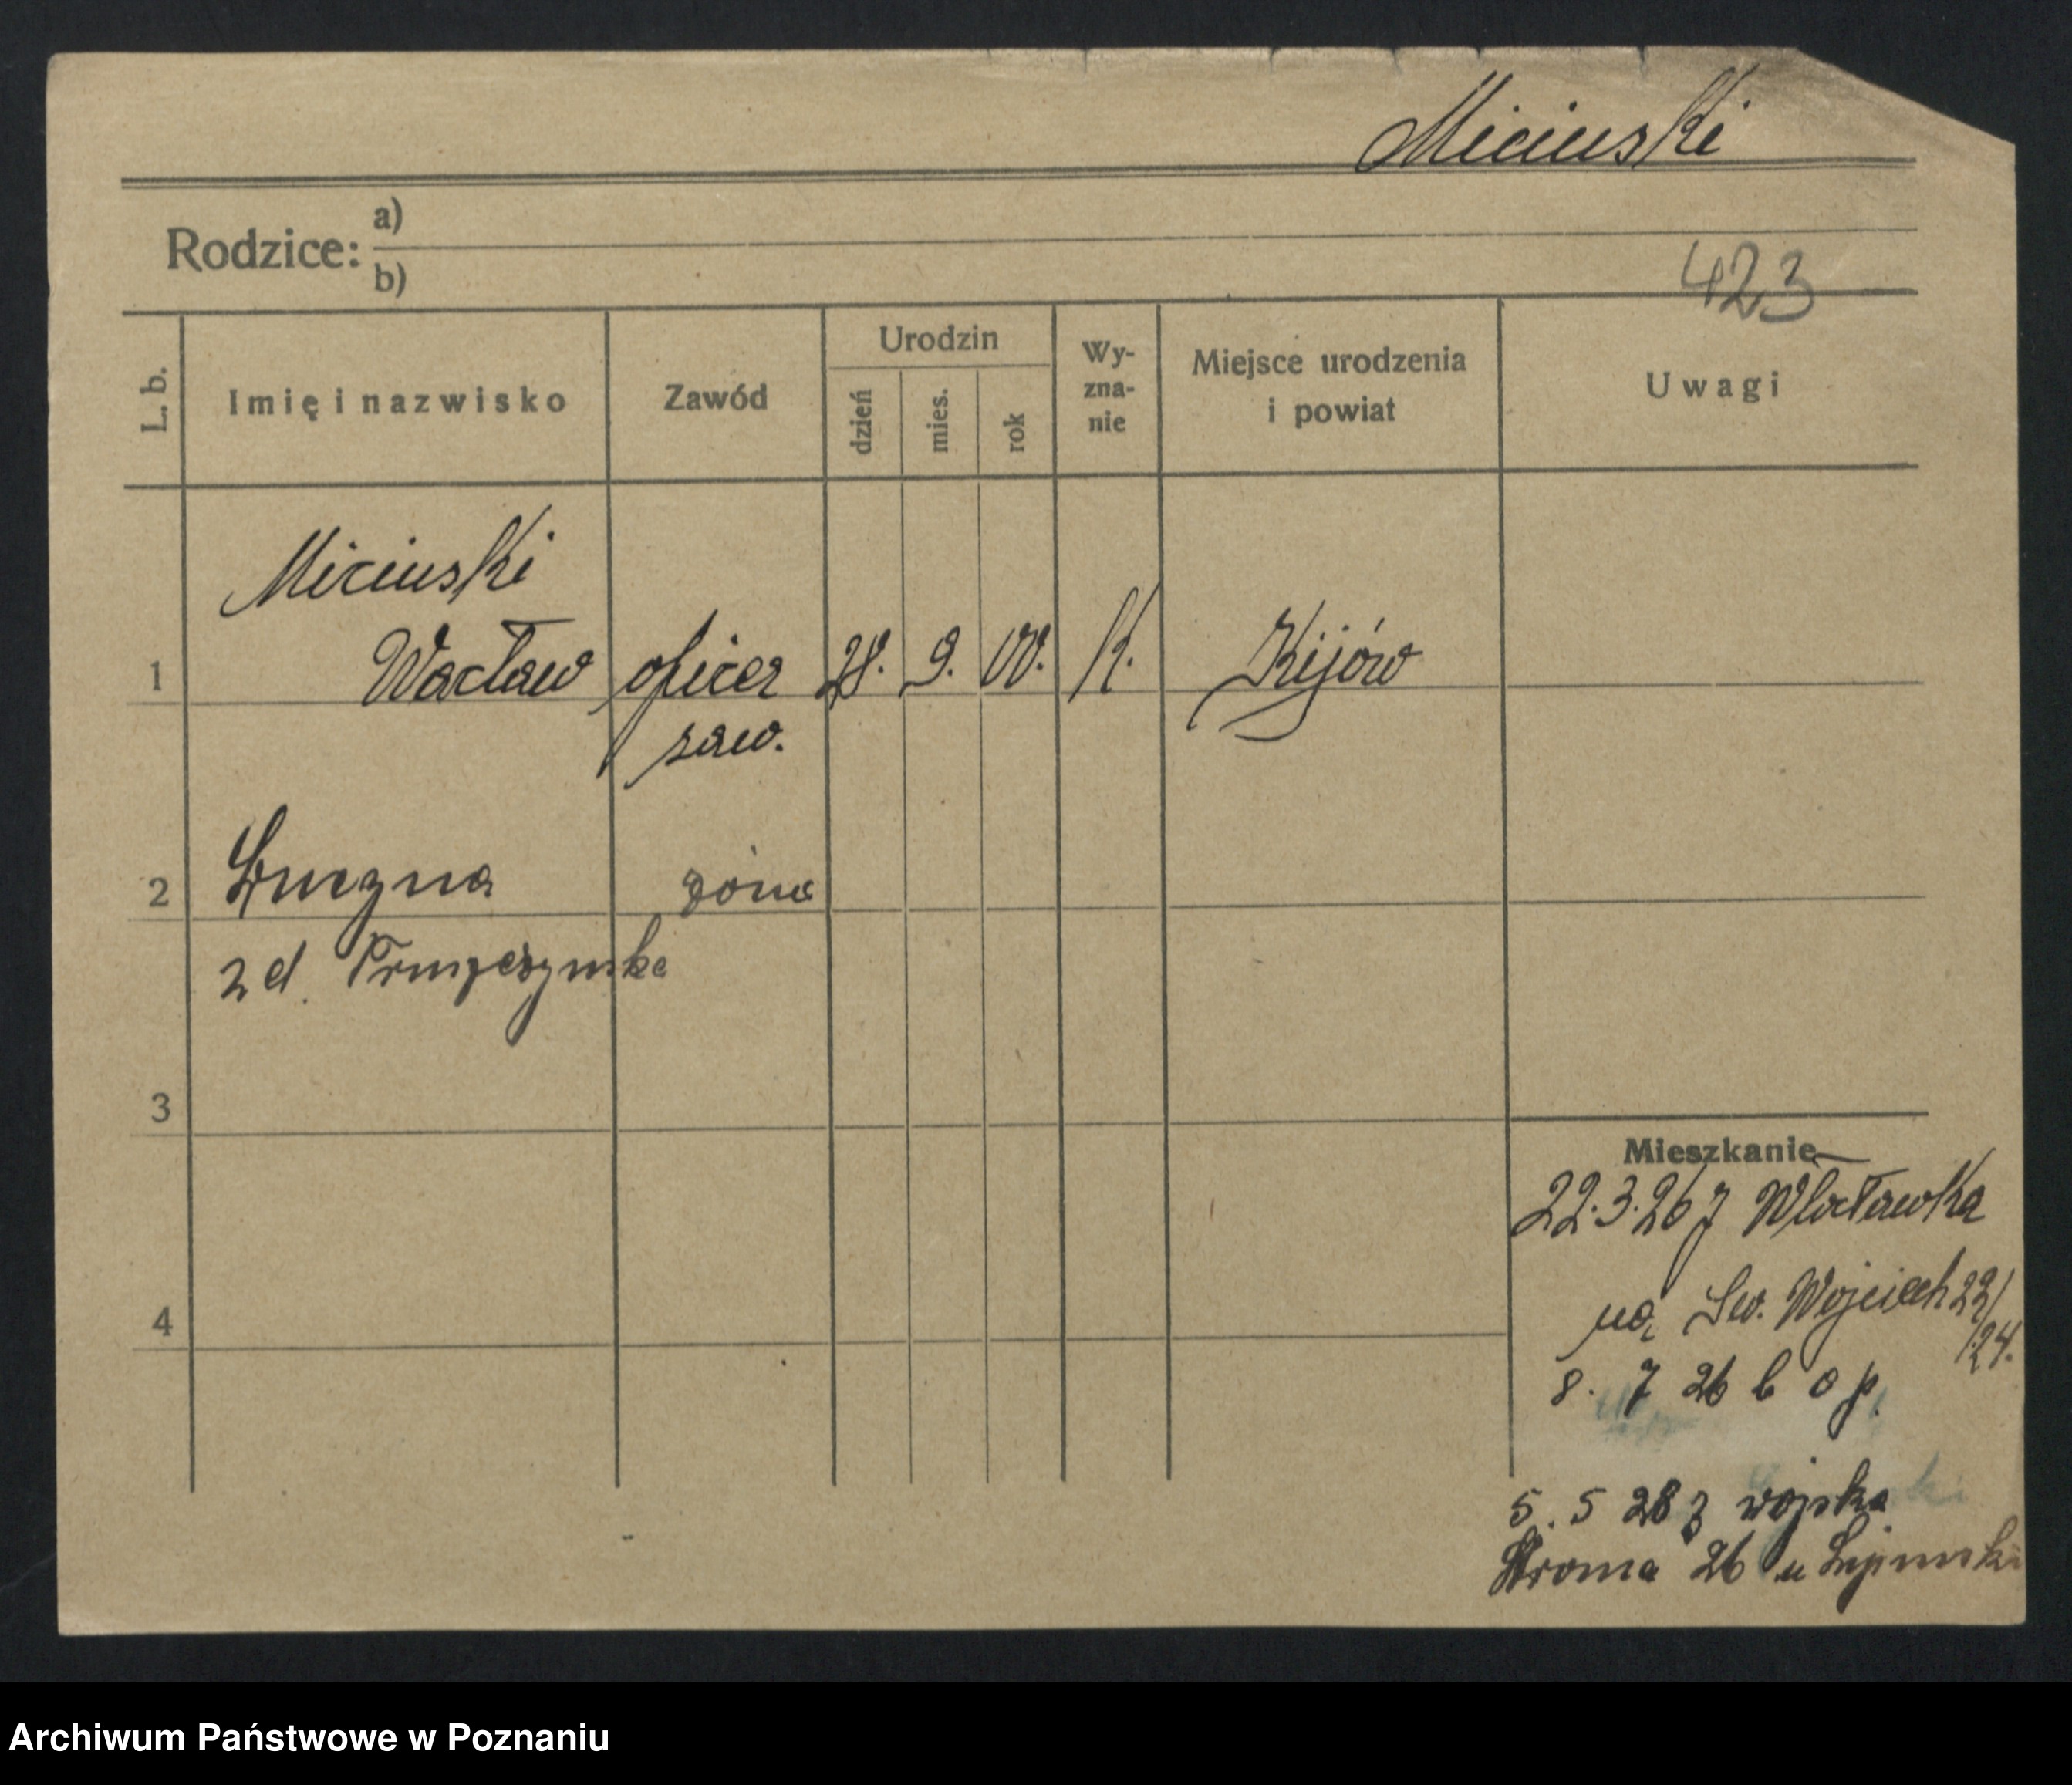 Miciuski
Rodzice: a)
b)
423
L. b.
Imię i nazwisko
Zawód
Urodzin
dzień
mies.
rok
Wy-
zna-
nie
Miejsce urodzenia
i powiat
Uwagi
Miciuski
1 Wacław oficer 28. 9. 00. K. Kijów
zaw.
2 żona
zd.
3
4
Mieszkanie
22.3.26 z Włocławka
na Św. Wojciech 22/
124.
8. 7 26 b o p.
5. 5 28 z wojska
26 u
Archiwum Państwowe w Poznaniu